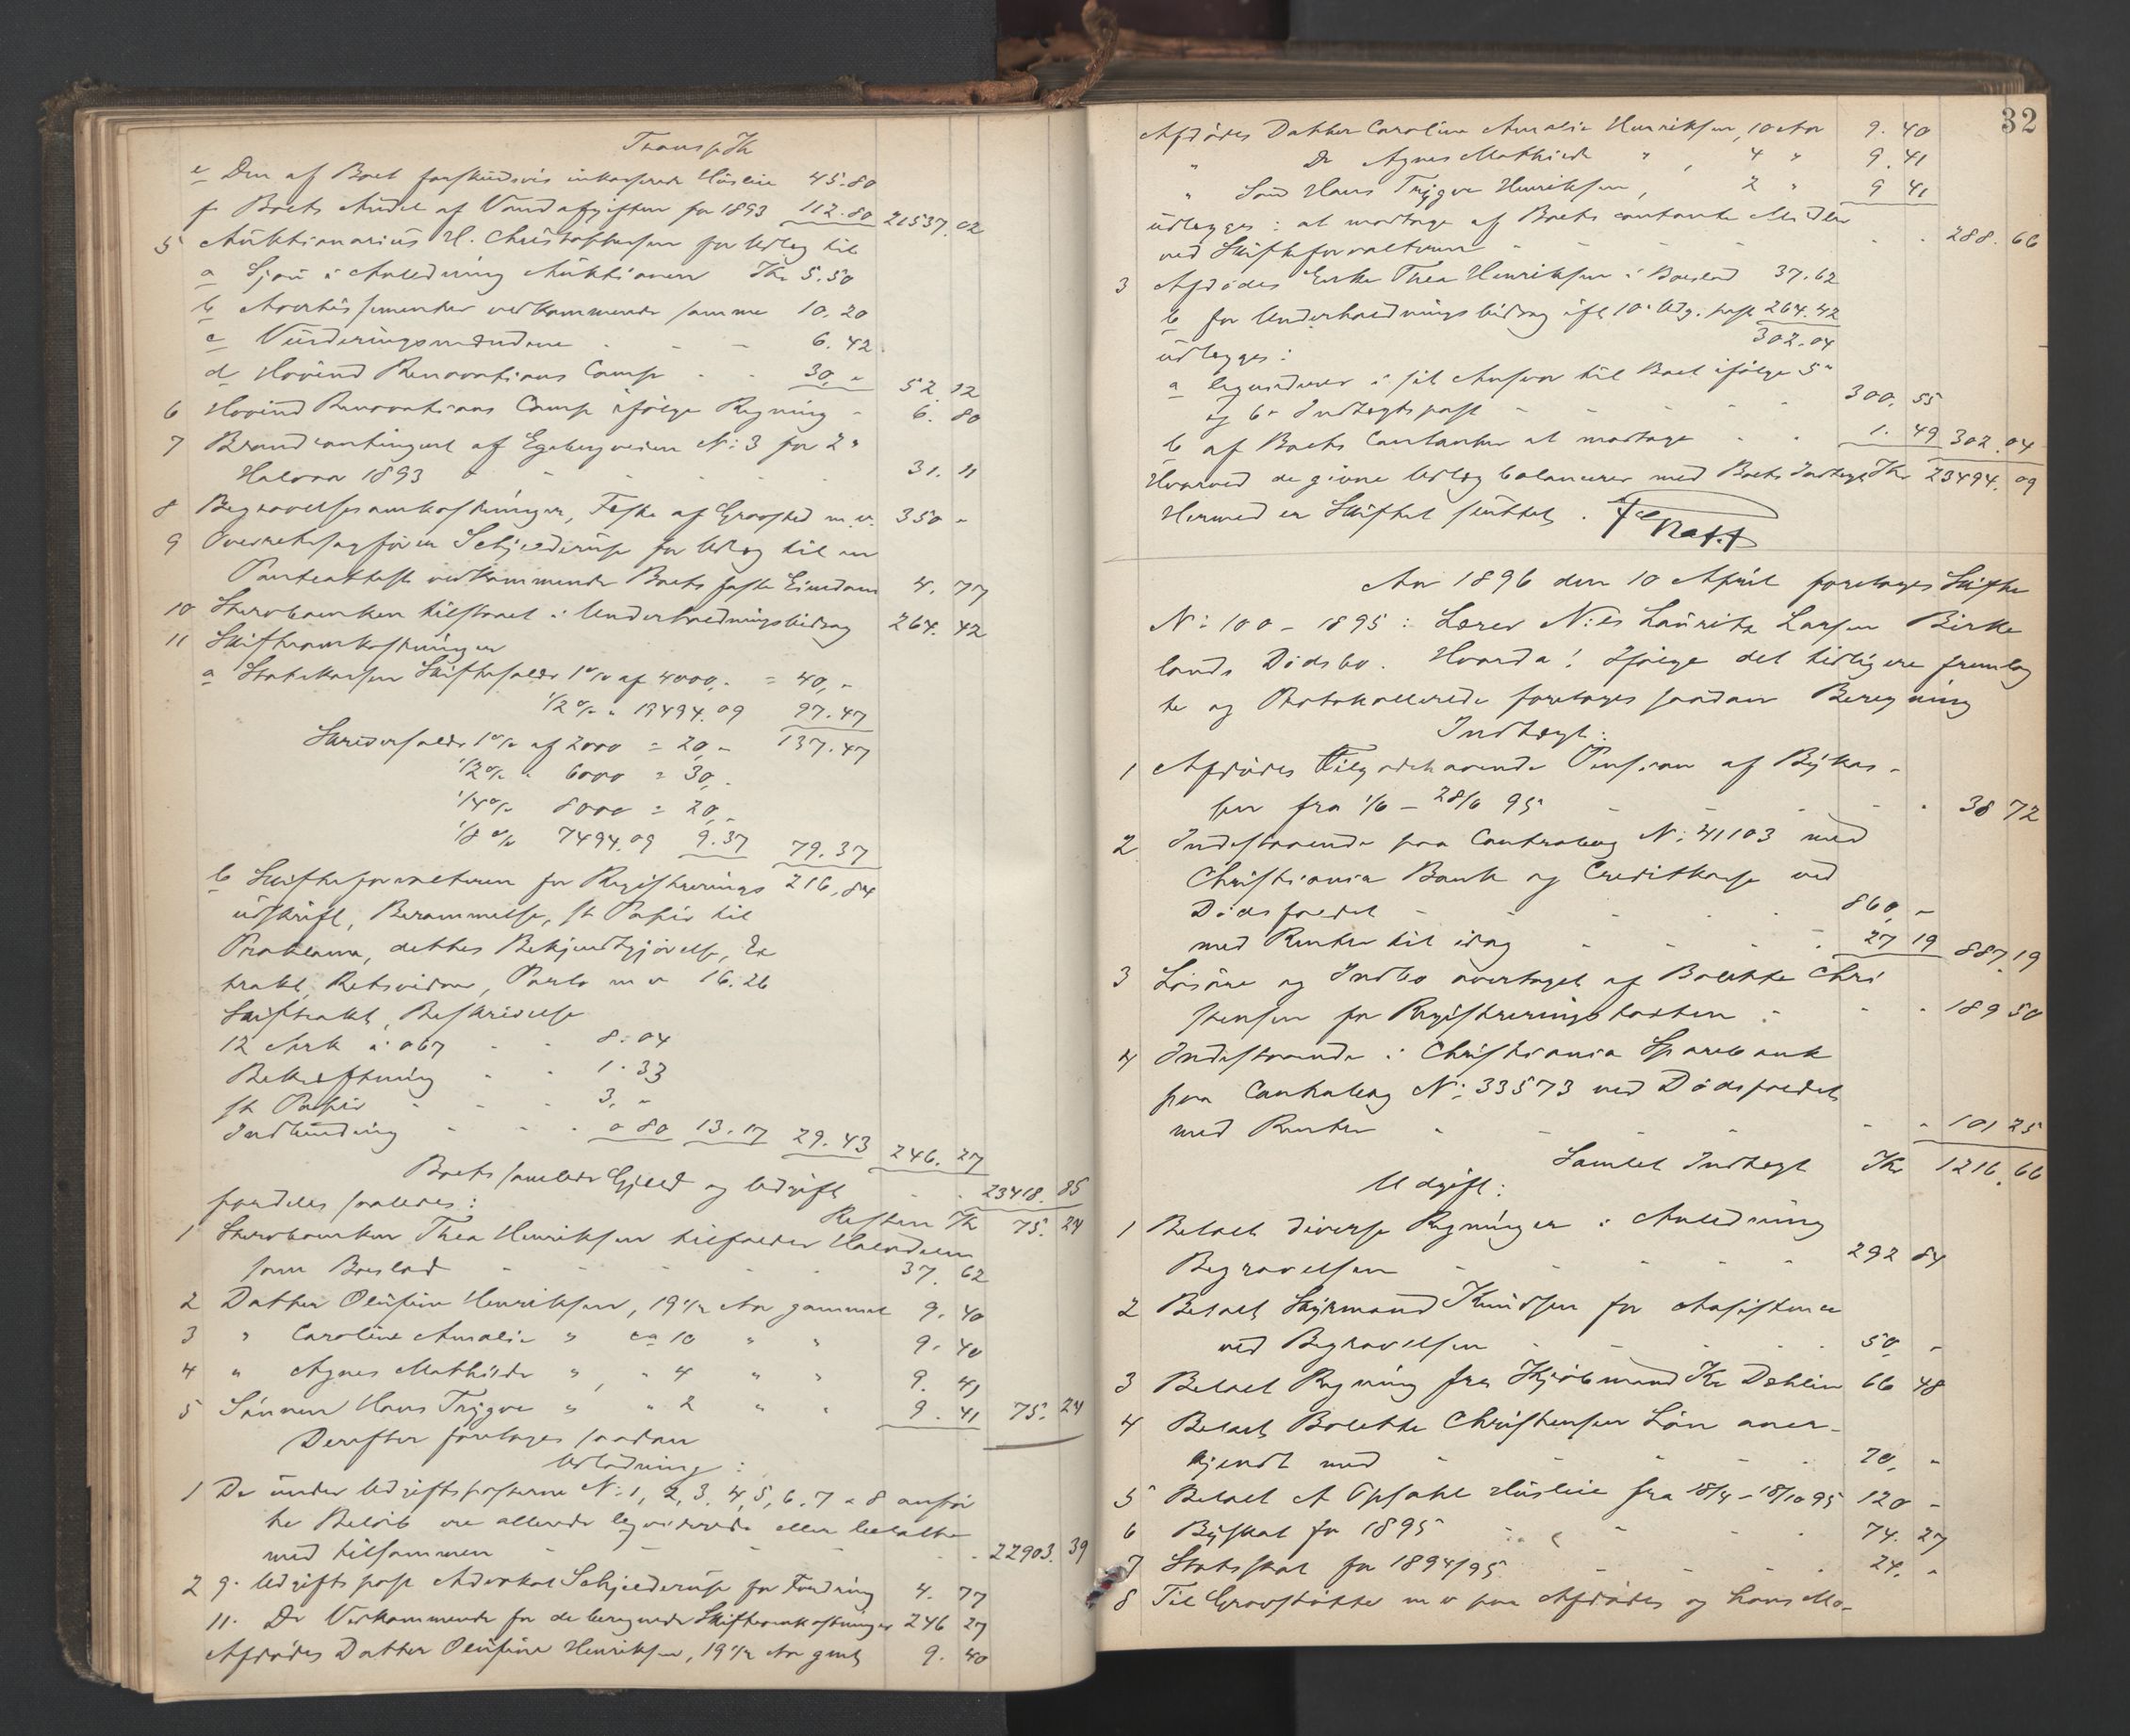 Transp Kr
e Den af Boet forskudsvis inkasserede Husleie 45.80
f Boets Andel af Vandafgiften for 1893 112.80 21537.02
5 Auktionarius H. Christophersen for Udlæg til
a Sjau i Anledning Auktionen Kr 5.50
b Avertissementer vedkommende samme 10.20
c Vurderingsmændene 6.42
d Hovind Renovations Comp 30,- 52.12
6 Hovind Renovations Comp ifølge Regning - 6.80
7 Brandcontingent af Egebergveien N: 3 for 2'
Halvaar 1893 31.11
8 Begravelsesomkostninger, Feste af Gravsted m.v. 350 -
9 Overretssagfører Schjelderup for Udlæg til en
Panteattest vedkommende Boets faste Eiendom 4.77
10 Skovbanken tilstaaet i Underholdningsbidrag 264.42
11 Skifteomkostninger
a Statskassen Skiftesalær 1% af 4000,- = 40,-
1/2% " 19494.09 97.47
Skriversalær 1% af 2000 = 20,- 137.47
1/2% " 6000 = 30,-
1/4% 8000 = 20,-
1/8% 7494.09 9.37 79.37
b Skifteforvalteren for Registrerings 216.84
udskrift, Berammelse, st Papir til
Proklama, dettes Bekjendtgjørelse, Ex
trakt, Retsvidner, Porto m v 16.26
Skifteakt, Beskrivelse
12 Ark à 067 8.04
Bekræftning 1.33
st Papir 3,-
Indbinding 0 80 13.17 29.43 246.27
Boets samlede Gjæld og Udgift 23418.85
Resten Kr 75.24
fordeles saaledes:
1 Thea Henriksen tilfalder Halvdelen
som Boeslod 37.62
2 Datter Olufine Henriksen, 19 1/2 Aar gammel 9.40
3 " Caroline Amalie " ca 10 " " 9.40
4 " Agnes Mathilde " , " 4 " " 9.41
5 Sønnen Hans Trygve " " 2 " " 9.41 75.24
Derefter foretages saadan
Udlodning:
1 De under Udgiftsposterne N: 1, 2, 3, 4, 5, 6, 7 & 8 anfør
te Beløb ere allerede liqviderede eller betalte
med tilsammen 22903.39
2 9. Udgiftspost Advokat Schjelderup for Fordring 4.77
11. De Vedkommende for de beregnede Skifteomkostninger 246 27
Afdødes Datter Olufine Henriksen, 19 1/2 Aar gml 9.40
32
Afdødes Datter Caroline Amalie Henriksen, 10 Aar 9.40
" Do Agnes Mathilde " , 4 " 9.41
" Søn Hans Trygve Henriksen, 2 " 9 41
udlægges: at modtage af Boets contante Midler
ved Skifteforvalteren 288.66
3 Afdødes Enke Thea Henriksen i Boeslod 37.62
b for Underholdningsbidrag ifl 10' Udg. post 264.42
302.04
udlægges:
a liqviderer i sit Ansvar til Boet ifølge 5'
og 6' Indtægtspost 300.55
b af Boets Contanter at modtage 1.49 302.04
Hvorved de givne Udlæg balancerer med Boets Indtægt Kr 23494.09
Hermed er Skiftet sluttet.
Aar 1896 den 10 April foretoges Skifte
N: 100 - 1895: Lærer Niels Lauritz Larsen Birke
lands Dødsbo. Hvorda: Ifølge det tidligere fremlag
te og Protokollerede foretoges saadan Beregning
Indtægt:
1 Afdødes Tilgodehavende Pension af Bykas-
sen fra 1/6 - 28/6 95 38 72
2 Indestaaende paa Contrabog N: 41103 med
Christiania Bank og Creditkasse ved
Dødsfaldet 860,-
med Renter til idag 27 19 887.19
3 Løsøre og Indbo overtaget af Bolette Chri
stensen for Registreringstaxten 189 50
4 Indestaaende i Christiania Sparebank
paa Contrabog N: 33573 ved Dødsfaldet
med Renter 101 25
Samlet Indtægt Kr 1216.66
Udgift:
1 Betalt diverse Regninger i Anledning
Begravelsen 292 84
2 Betalt Styrmand Knudsen for Assistance
ved Begravelsen 50,-
3 Betalt Regning fra Kjøbmand Kr Dæhlin 66 48
4 Betalt Bolette Christensen Løn aner-
kjendt med 70,-
5 Betalt A Opsahl Husleie fra 18/4 - 18/10 95 120 -
6 Byskat for 1895 74.27
7 Statsskat for 1894/95 24.-
8 Til Gravstøtte m v paa Afdødes og hans Mo-